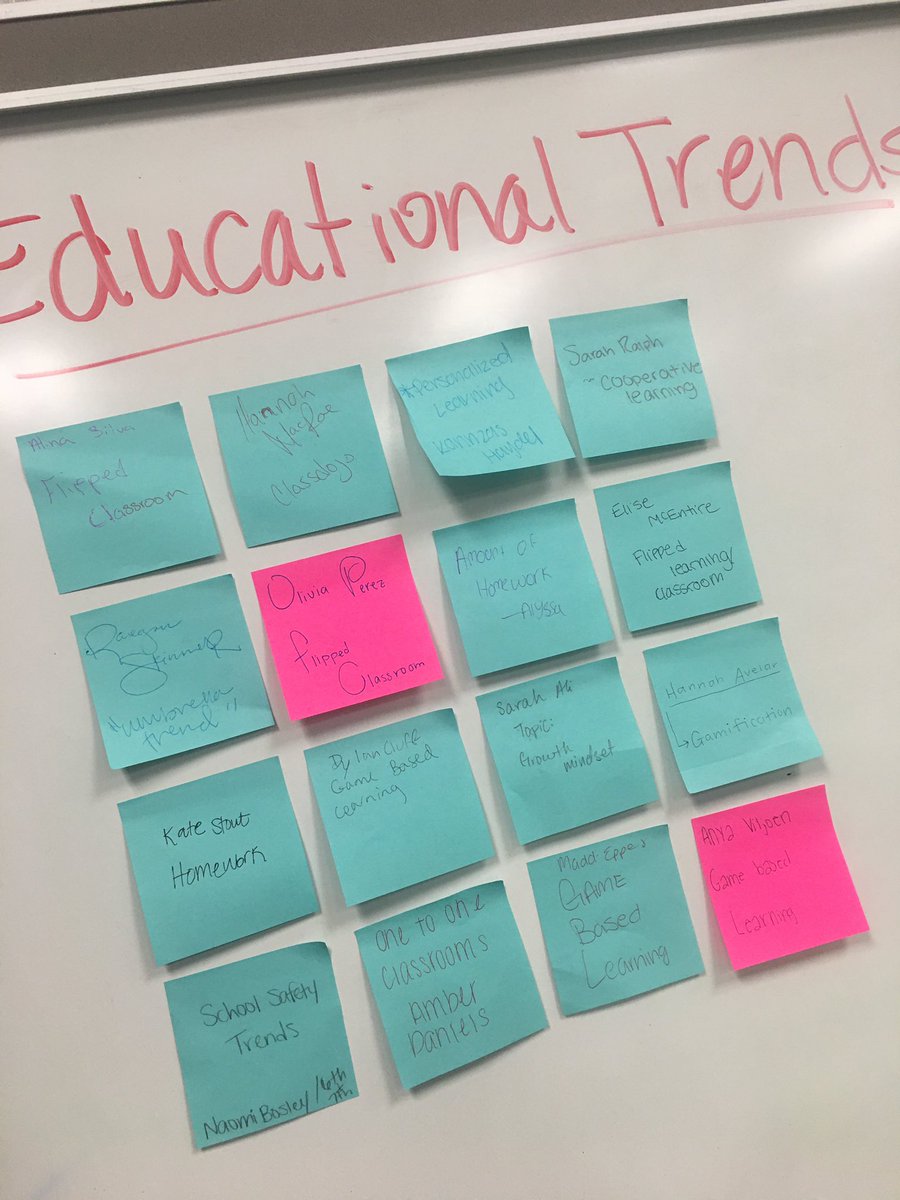 Educational Trends
Alina Silva
Flipped
Classroom
Hannah
MacRae
Classdojo
*Personalized
Learning
Haydel
Sarah Ralph
~ Cooperative
learning
Skinner
"umbrella
trend"
Olivia Perez
flipped
Classroom
Amount of
Homework
—Alyssa
Elise
McEntire
Flipped
learning/
classroom
Kate Stout
Homework
Dylan Cluff
Game Based
Learning
Sarah Ali
Topic:
Growth
mindset
Hannah Avelar
↳ Gamification
School Safety
Trends
Naomi Bosley / 6th
7th
one to one
classrooms
Amber
Daniels
GAME
Based
Learning
Anya Viljoen
Game based
Learning